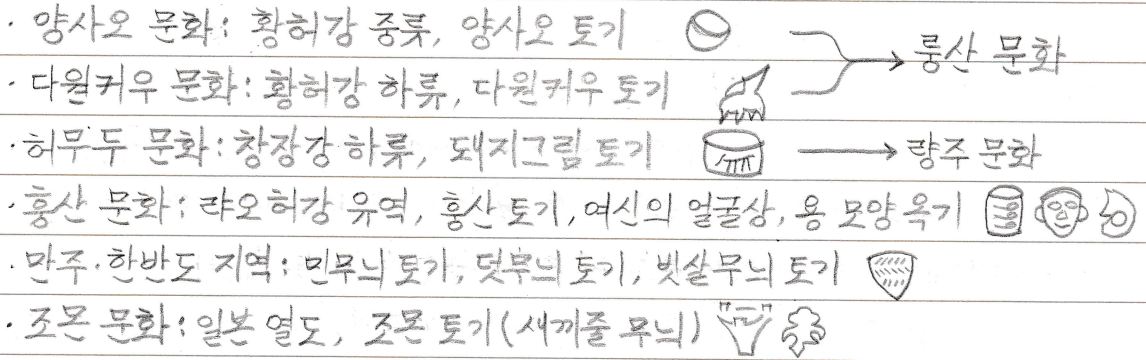 · 양사오 문화: 황허강 중류, 양사오 토기 → 룽산 문화
· 다원커우 문화: 황허강 하류, 다원커우 토기
· 허무두 문화: 창장강 하류, 돼지그림 토기 → 량주 문화
· 훙산 문화: 랴오허강 유역, 훙산 토기, 여신의 얼굴상, 용 모양 옥기
· 만주·한반도 지역: 민무늬 토기, 덧무늬 토기, 빗살무늬 토기
· 조몬 문화: 일본 열도, 조몬 토기(새끼줄 무늬)